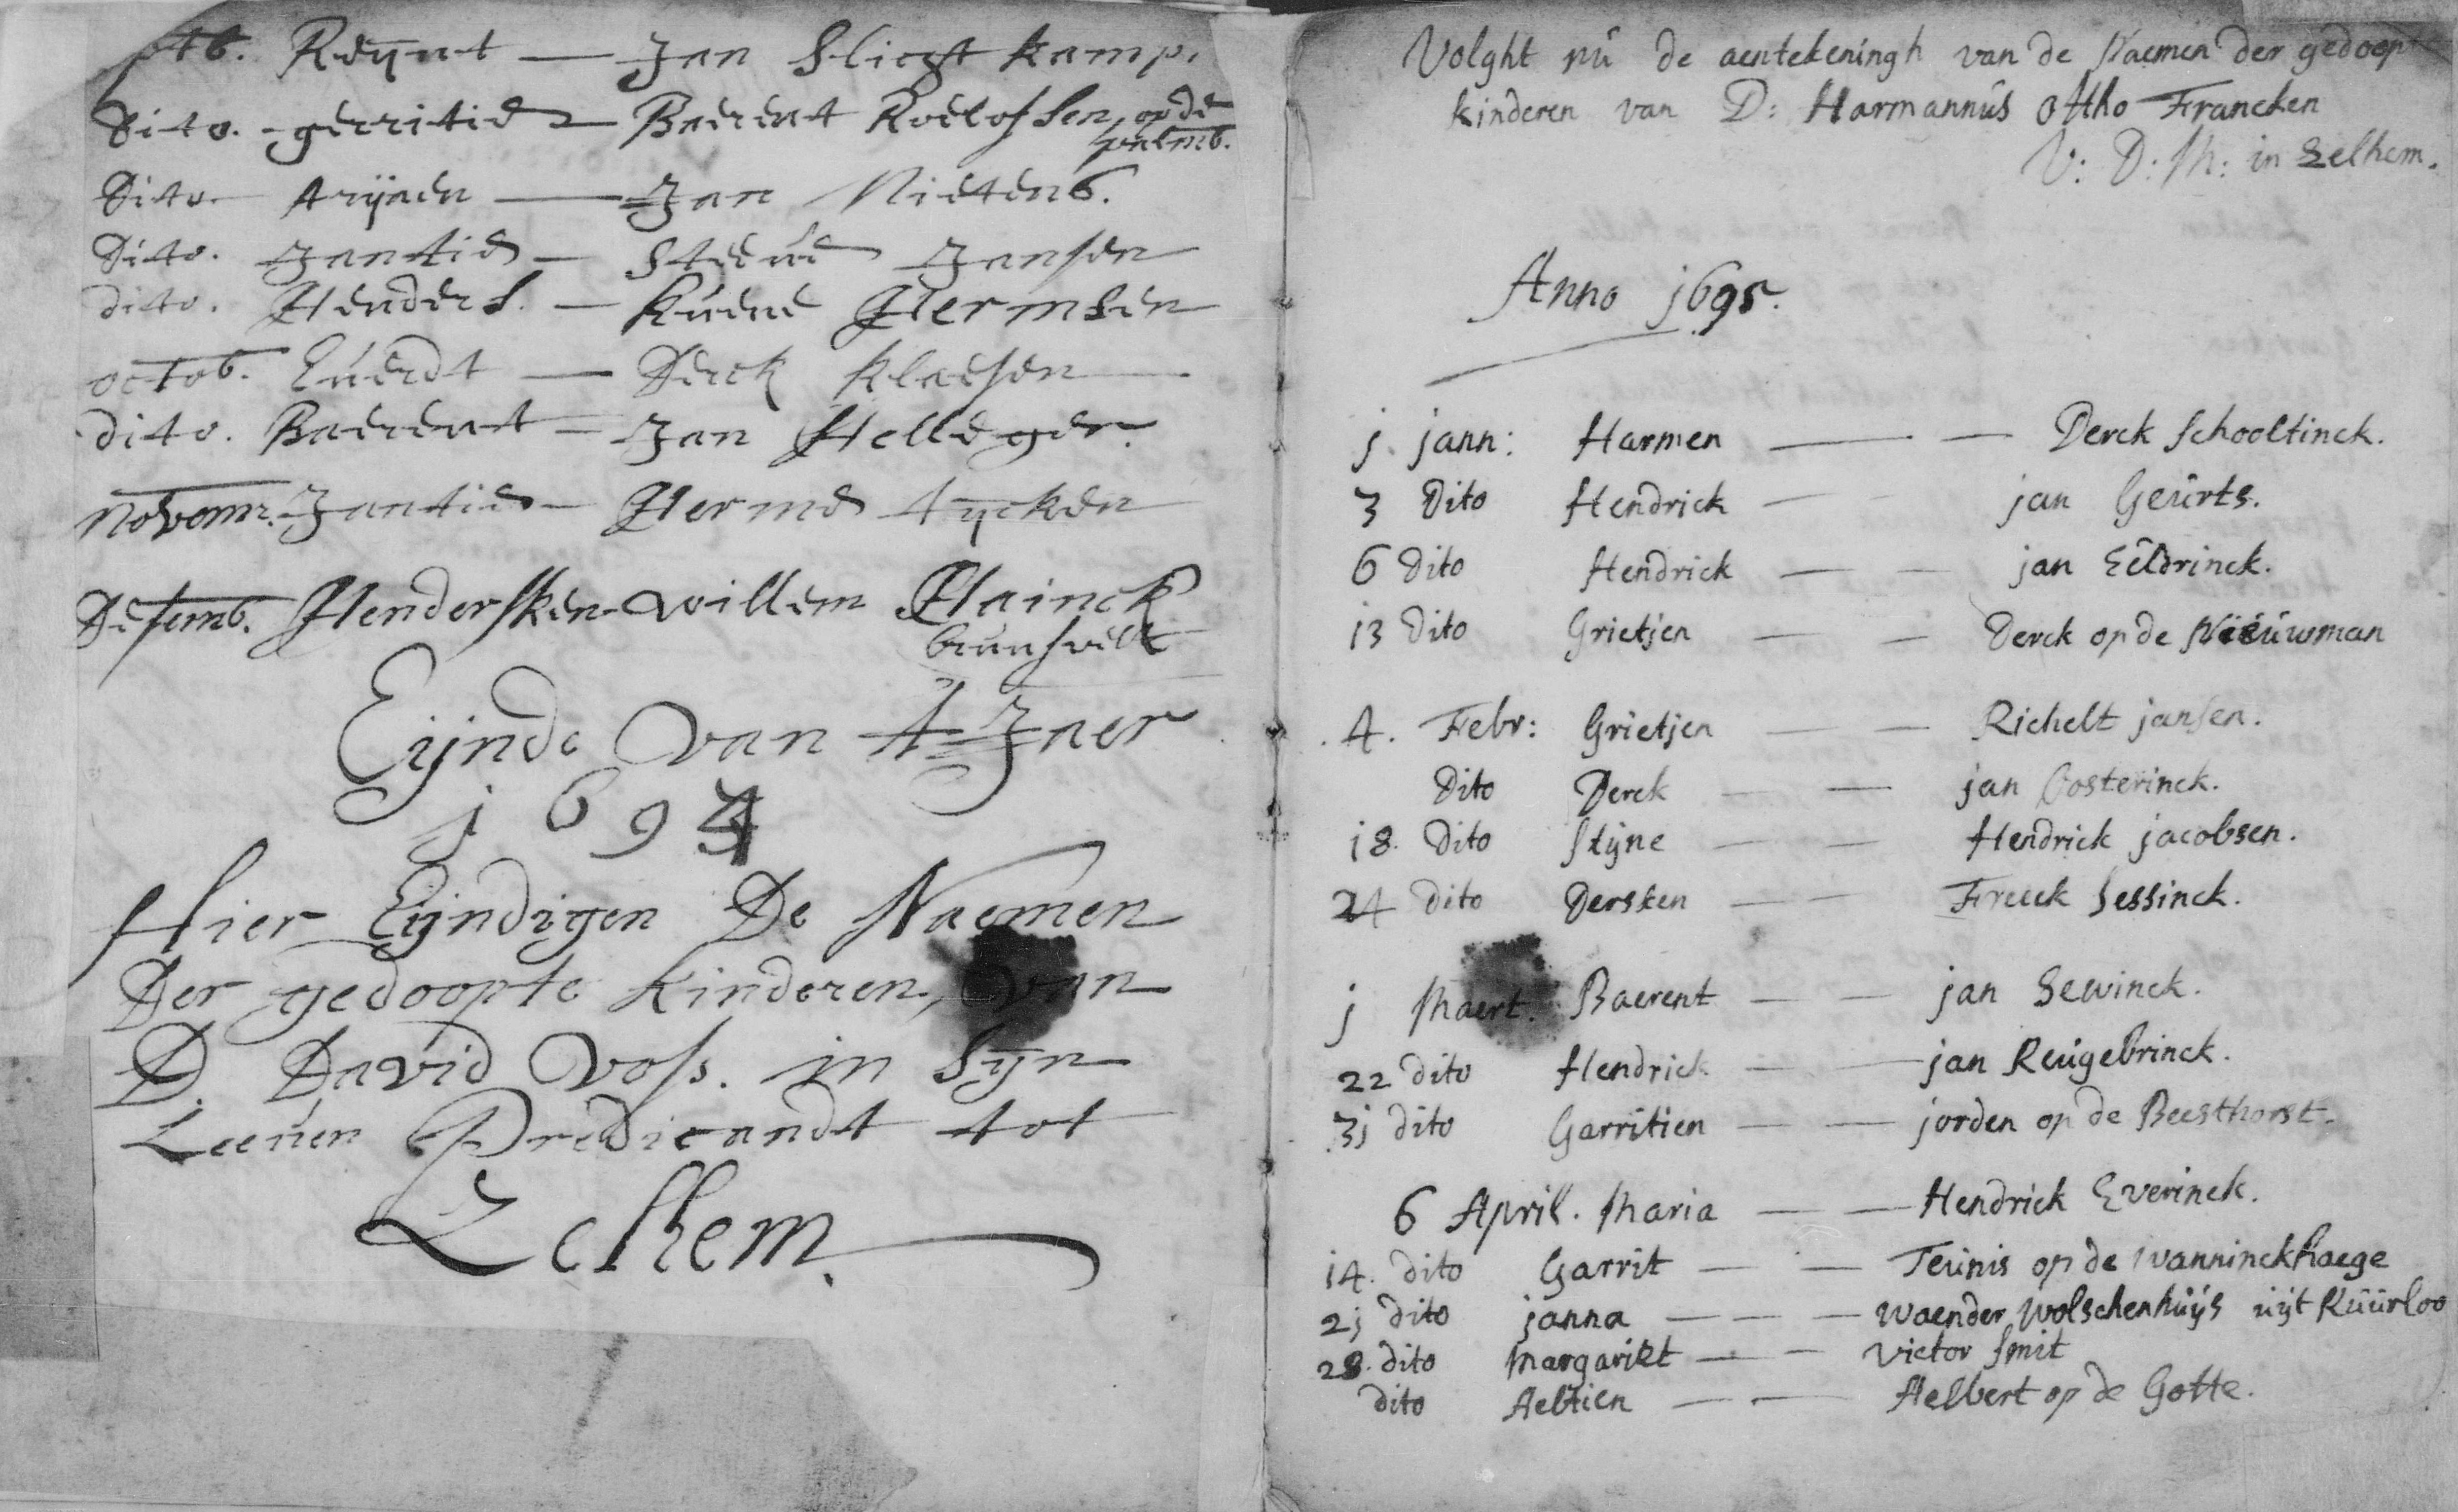 Reijnt — Jan Slichtkamp.
Dito. gerritie — Baerent Roelofsen, op de
Dito. trijnen — Jan Nietens.
Dito. Jantie — Steeue Jansen
dito. Henders. — Kuene Hermsen
octob. Euerdt — Derck Klaesen
dito. Baerent — Jan Helleger.
Novemr. Jantie — Herme tijcken
Desemb. Hendersken — willem Hainck
Eijnde van t Jaer
1694
Hier Eijndigen De Naemen
Der gedoopte kinderen, van
D. David Voss. in sijn
Leeuen Predicandt tot
Zelhem.
Volght nu de aentekeningh van de Naemen der gedoop
kinderen van D: Harmannus Otho Francken
V: D: M: in Zelhem.
Anno 1695.
j jann: Harmen — — Derck Schooltinck.
3 Dito Hendrick — — jan Geurts.
6 Dito Hendrick — — jan Eeldrinck.
13 Dito Grietjen — — Derck op de Nieuwman
4. Febr: Grietjen — — Richelt jansen.
Dito Derck — — jan Oosterinck.
18. Dito Stijne — — Hendrick jacobsen.
24 Dito Dersken — — Freeck Sessinck.
j Maert. Baerent — — jan Sewinck.
22 dito Hendrick — — jan Reugebrinck.
3j dito Garritien — — jorden op de Beesthorst.
6 April. Maria — — Hendrick Everinck.
14. dito Garrit — — Teunis op de Wanninckhaege
2j dito janna — — — Waender Wolschenhuijs uijt Ruurloo
28. dito Margariet — — Victor Smit
dito Aeltien — — Aelbert op de Gotte.